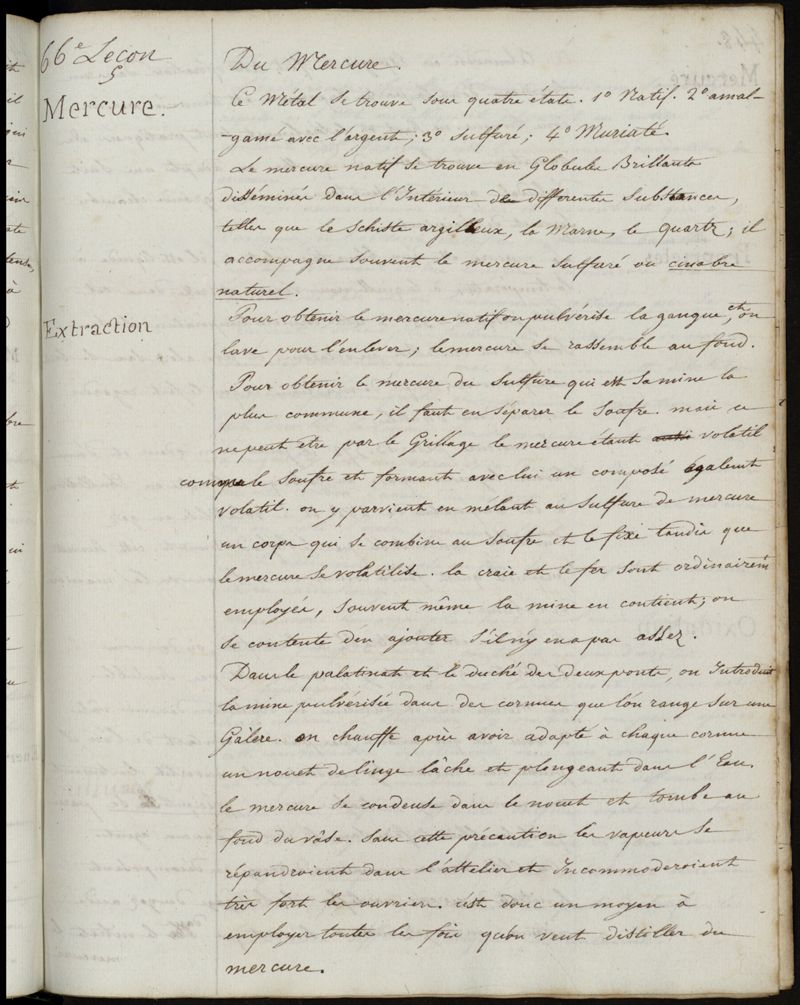 66e Lecon
Mercure.
Du Mercure.
Ce Métal se trouve sous quatre états. 1º Natif. 2º amal-
-gamé avec l'argent; 3º sulfuré; 4º Muriaté.
Le mercure natif se trouve en Globules Brillants
disséminés dans l'Intérieur de differentes substances,
telles que le schiste argilleux, la Marne, le quartz; il
accompagne souvent le mercure sulfuré ou cinabre
naturel.
Extraction
Pour obtenir le mercure natif on pulvérise la gangue, et on
lave pour l'enlever; le mercure se rassemble au fond.
Pour obtenir le mercure du sulfure qui est sa mine la
plus commune, il faut en séparer le soufre. mais ce
ne peut etre par le Grillage le mercure étant volatil
comme le soufre et formant avec lui un composé égalemt
volatil. on y parvient en mêlant au sulfure de mercure
un corps qui se combine au soufre et le fixe tandis que
le mercure se volatilise. la craie et le fer sont ordinairemt
employés, souvent même la mine en contient; on
se contente d'en ajouter s'il n'y en a pas assez.
Dans le palatinat et le duché des deux ponts, on Introduit
la mine pulvérisée dans des cornues que l'on range sur une
Galere. on chauffe après avoir adapté à chaque cornue
un nouet de linge lâche et plongeant dans l'Eau.
le mercure se condense dans le nouet et tombe au
fond du vâse. sans cette précaution les vapeurs se
répandroient dans l'attelier et Incommoderoient
très fort les ouvriers. c'est donc un moyen à
employer toutes les fois qu'on veut distiller du
mercure.